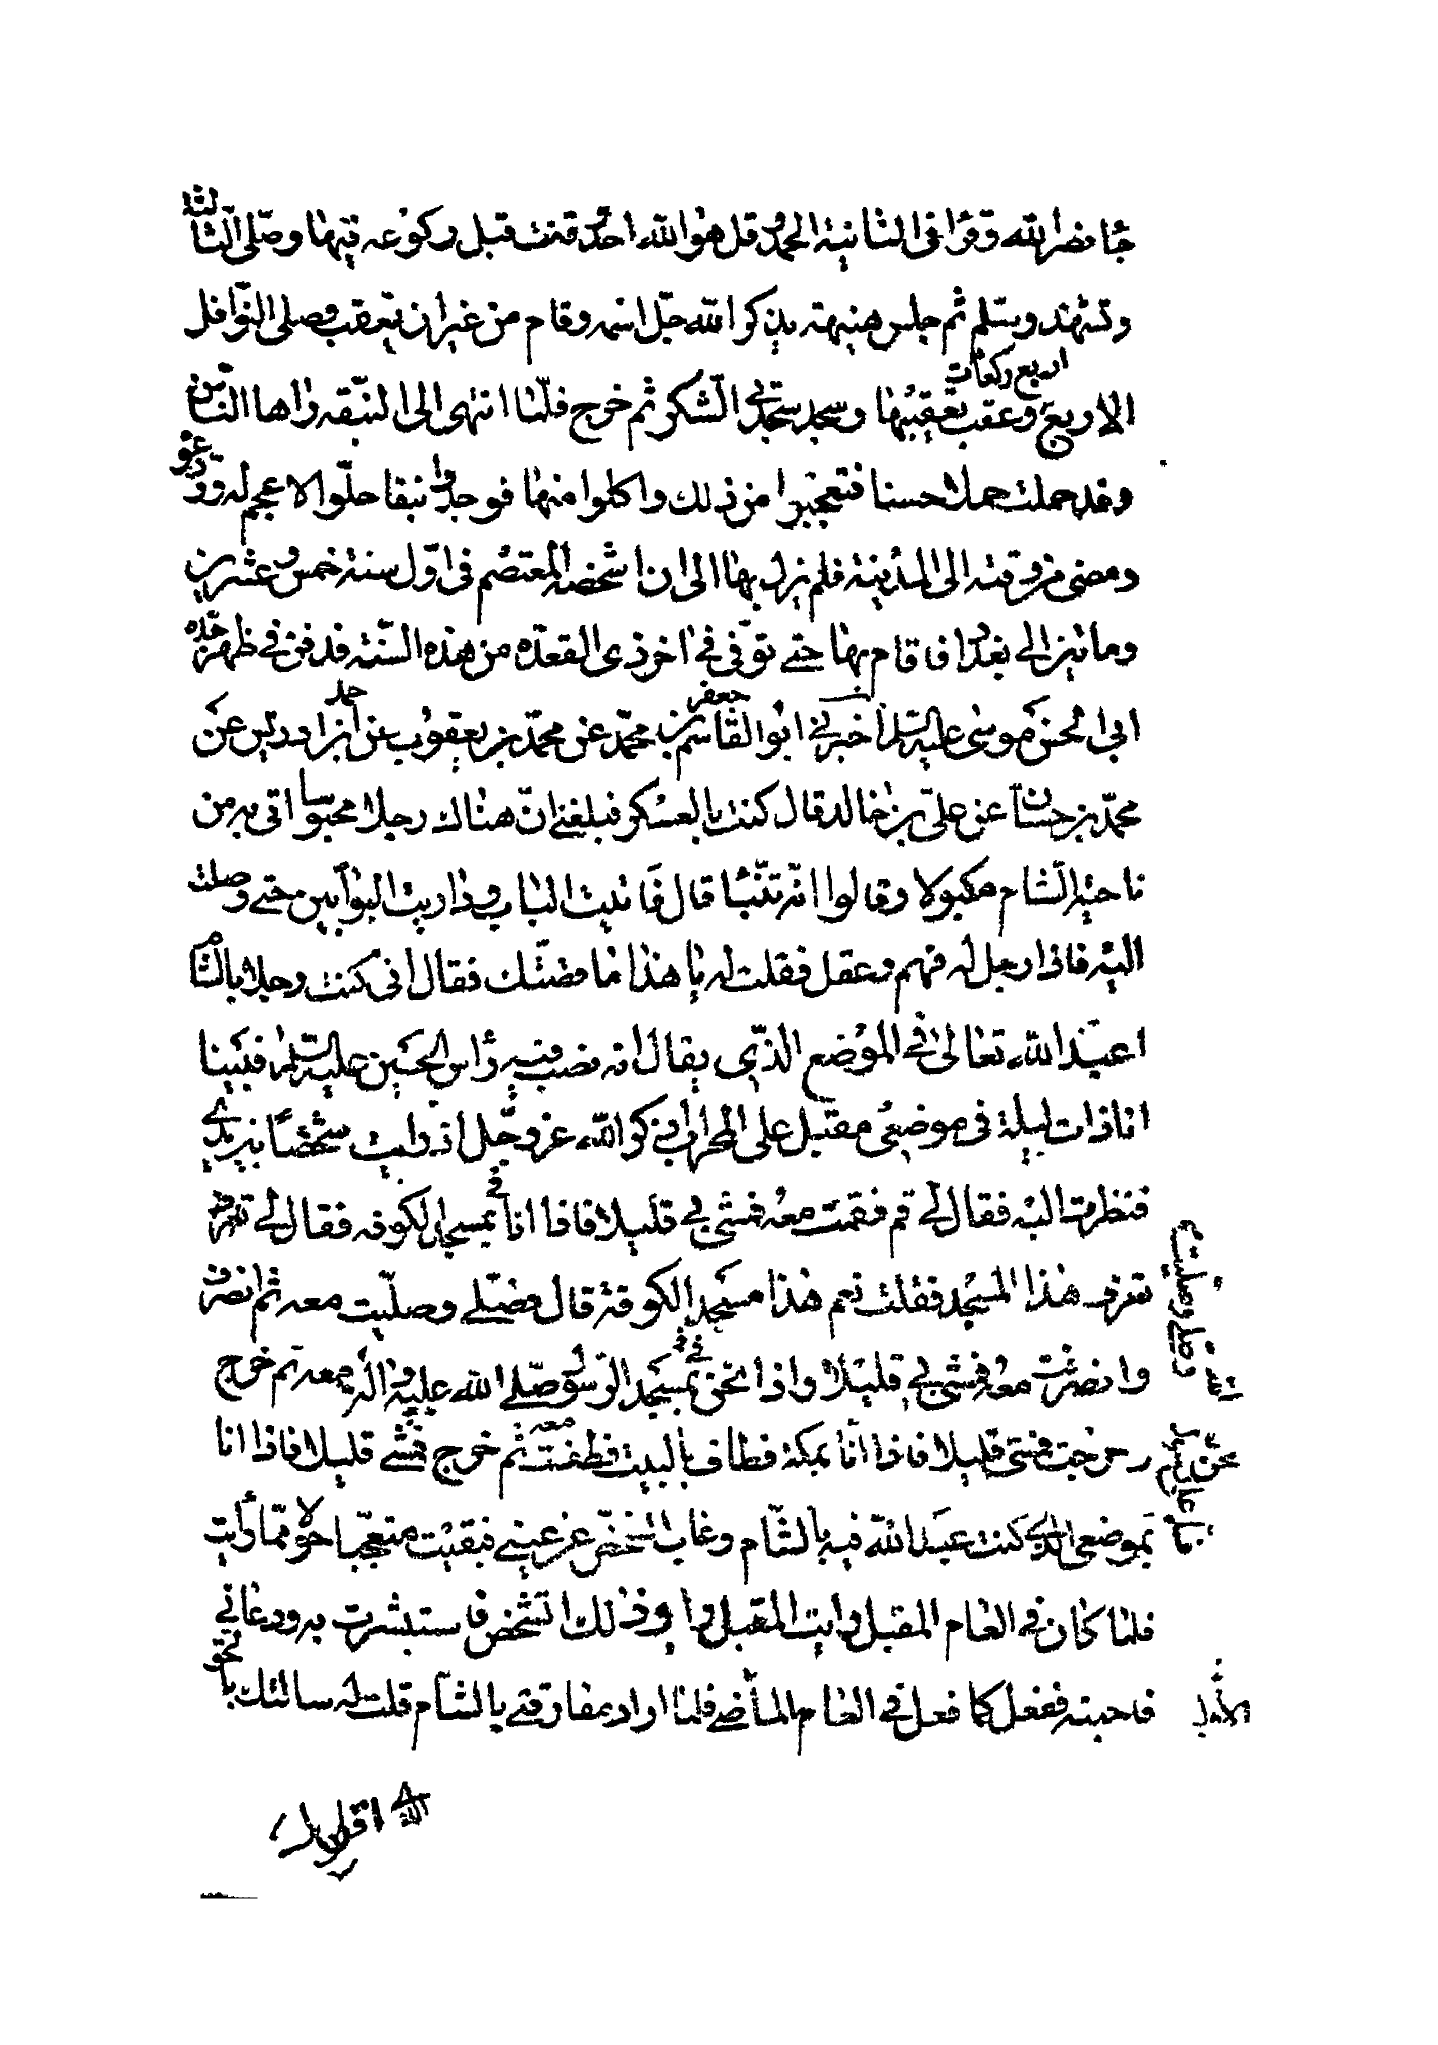 جا نصر الله وقرا فى الثانية الحمد وقل هو الله احد وقنت قبل ركوعه فيها وصلى الثالثة
وتشهد وسلم ثم جلس هنيهة يذكر الله جل اسمه وقام من غير ان يعقب وصلى النوافل
اربع ركعات
الاربع وعقب تعقيبها وسجد سجدتى الشكر ثم خرج فلما انتهى الى النبقه راها الناس
وقد حملت حملا حسنا فتعجبوا من ذلك واكلوا منها فوجدوا نبقا حلوا لا عجم له وودعوه
ومضى من وقته الى المدينة فلم يزل بها الى ان اشخصه المعتصم فى اول سنة خمس وعشرين
وماتين الى بغداد فاقام بها حتى توفى فى اخر ذى القعده من هذه السنة فدفن فى ظهر جده
ابى الحسن موسى عليه السلم اخبرنى ابو القاسم جعفر بن محمد عن محمد بن يعقوب عن احمد بن ادريس عن
محمد بن حسان عن على بن خالد قال كنت بالعسكر فبلغنى ان هناك رجلا محبوسا اتى به من
ناحية الشام مكبولا وقالوا انه تنبا قال فاتيت الباب وداريت البوابين حتى وصلت
اليه فاذا رجل له فهم وعقل فقلت له يا هذا ما قصتك فقال انى كنت رجلا بالشام
اعبد الله تعالى فى الموضع الذى يقال انه نصب فيه راس الحسين عليه السلم فبينا
انا ذات ليلة فى موضعى مقبل على المحراب اذكر الله عز وجل اذ رايت شخصا بين يدى
فنظرت اليه فقال لى قم فقمت معه فمشى بى قليلا فاذا انا فى مسجد الكوفه فقال لى
تعرف هذا المسجد فقلت نعم هذا مسجد الكوفة قال فصلى وصليت معه ثم انصرف
وانصرفت معه فمشى بى قليلا واذا نحن بمسجد الرسول صلى الله عليه واله معه ثم خرج
وخرجت فمشى قليلا فاذا انا بمكة فطاف بالبيت فطفت معه ثم خرج فمشى قليلا فاذا انا
بموضعى الذى كنت عبد الله فيه بالشام وغاب الشخص عن عينى فبقيت متعجبا حولا مما رايت
فلما كان فى العام المقبل رايت ذلك الشخص فاستبشرت به ودعانى
فاجبته ففعل كما فعل فى العام الماضى فلما اراد مفارقتى بالشام قلت له سالتك بالحق
وصلى وصليت
الاول